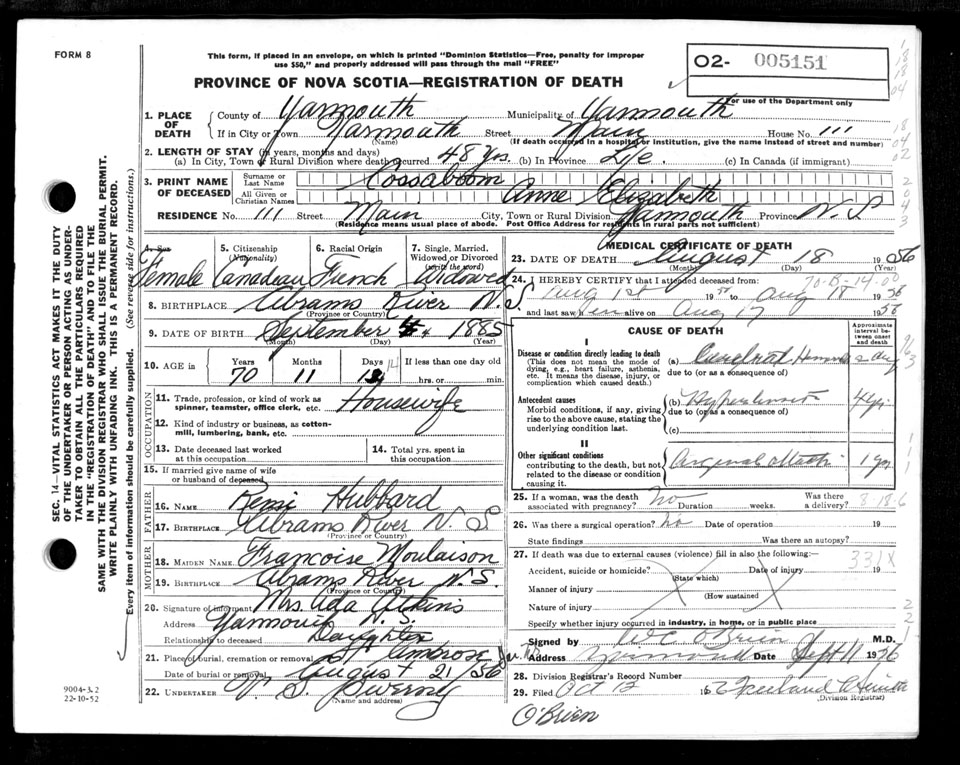 FORM 8
This form, if placed in an envelope, on which is printed "Dominion Statistics—Free, penalty for improper
use $50," and properly addressed will pass through the mail "FREE"
PROVINCE OF NOVA SCOTIA—REGISTRATION OF DEATH
O2- 005151
For use of the Department only
SEC. 14—VITAL STATISTICS ACT MAKES IT THE DUTY
OF THE UNDERTAKER OR PERSON ACTING AS UNDER-
TAKER TO OBTAIN ALL THE PARTICULARS REQUIRED
IN THE "REGISTRATION OF DEATH" AND TO FILE THE
SAME WITH THE DIVISION REGISTRAR WHO SHALL ISSUE THE BURIAL PERMIT.
WRITE PLAINLY WITH UNFADING INK. THIS IS A PERMANENT RECORD.
Every item of information should be carefully supplied. (See reverse side for instructions.)
1. PLACE OF DEATH County of Yarmouth Municipality of Yarmouth
If in City or Town Yarmouth Street Main House No. 111
(Name) (If death occurred in a hospital or institution, give the name instead of street and number)
2. LENGTH OF STAY (in years, months and days)
(a) In City, Town or Rural Division where death occurred 48 Yrs. (b) In Province Life. (c) In Canada (if immigrant)
3. PRINT NAME OF DECEASED Surname or Last Name Cossaboom
All Given or Christian Names Anne Elizabeth
RESIDENCE No. 111 Street Main City, Town or Rural Division Yarmouth Province N.S
(Residence means usual place of abode. Post Office Address for residents in rural parts not sufficient)
4. Sex 5. Citizenship (Nationality) 6. Racial Origin 7. Single, Married, Widowed or Divorced (write the word)
Female Canadian French Widowed
8. BIRTHPLACE Abrams River N.S
(Province or Country)
9. DATE OF BIRTH September 4 1885
(Month) (Day) (Year)
10. AGE in Years Months Days If less than one day old
70 11 14 hrs. or min.
OCCUPATION
11. Trade, profession, or kind of work as
spinner, teamster, office clerk, etc. Housewife
12. Kind of industry or business, as cotton-
mill, lumbering, bank, etc.
13. Date deceased last worked
at this occupation
14. Total yrs. spent in
this occupation
15. If married give name of wife
or husband of deceased
FATHER
16. NAME Remi Hubbard
17. BIRTHPLACE Abrams River N.S
(Province or Country)
MOTHER
18. MAIDEN NAME Francoise Moulaison
19. BIRTHPLACE Abrams River N.S.
(Province or Country)
20. Signature of informant Mrs. Ada Atkins
Address Yarmouth N.S.
Relationship to deceased Daughter
21. Place of burial, cremation or removal St Ambrose
Date of burial or removal August 21/56
22. UNDERTAKER V. S. Sweeney
(Name and address)
9004-3.2
22-10-52
MEDICAL CERTIFICATE OF DEATH
23. DATE OF DEATH August 18 1956
(Month) (Day) (Year)
24. I HEREBY CERTIFY that I attended deceased from
Aug 1st 19 to Aug 18 1956
and last saw her alive on Aug 17 1956
CAUSE OF DEATH
Approximate interval between onset and death
I
Disease or condition directly leading to death
(This does not mean the mode of
dying, e.g., heart failure, asthenia,
etc. It means the disease, injury, or
complication which caused death.)
(a) Cerebral
due to (or as a consequence of)
Antecedent causes
Morbid conditions, if any, giving
rise to the above cause, stating the
underlying condition last.
(b) Hypertension 4 yrs
due to (or as a consequence of)
(c)
II
Other significant conditions
contributing to the death, but not
related to the disease or condition
causing it.
1 yr
25. If a woman, was the death
associated with pregnancy? No Duration weeks. Was there a delivery?
26. Was there a surgical operation? No Date of operation 19
State findings Was there an autopsy?
27. If death was due to external causes (violence) fill in also the following:
331X
Accident, suicide or homicide? Date of injury 19
(State which)
Manner of injury
(How sustained)
Nature of injury
Specify whether injury occurred in industry, in home, or in public place
Signed by W.C. O'Brien M.D.
Address Yarmouth Date Sept 11 1956
28. Division Registrar's Record Number
29. Filed Oct 12
(Division Registrar)
O'Brien